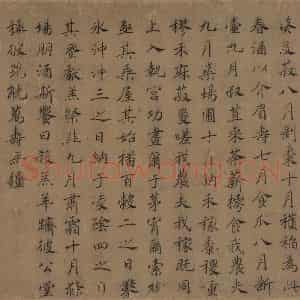 葵及菽八月剝棗十月穫稻為此
春酒以介眉壽七月食瓜八月斷
壺九月叔苴采荼薪樗食我農夫
九月築場圃十月納禾稼黍稷重
穋禾麻菽麥嗟我農夫我稼既同
上入執宮功晝爾于茅宵爾索綯
亟其乘屋其始播百穀二之日鑿
冰沖沖三之日納于凌陰四之日
其蚤獻羔祭韭九月肅霜十月滌
場朋酒斯饗曰殺羔羊躋彼公堂
稱彼兕觥萬壽無疆